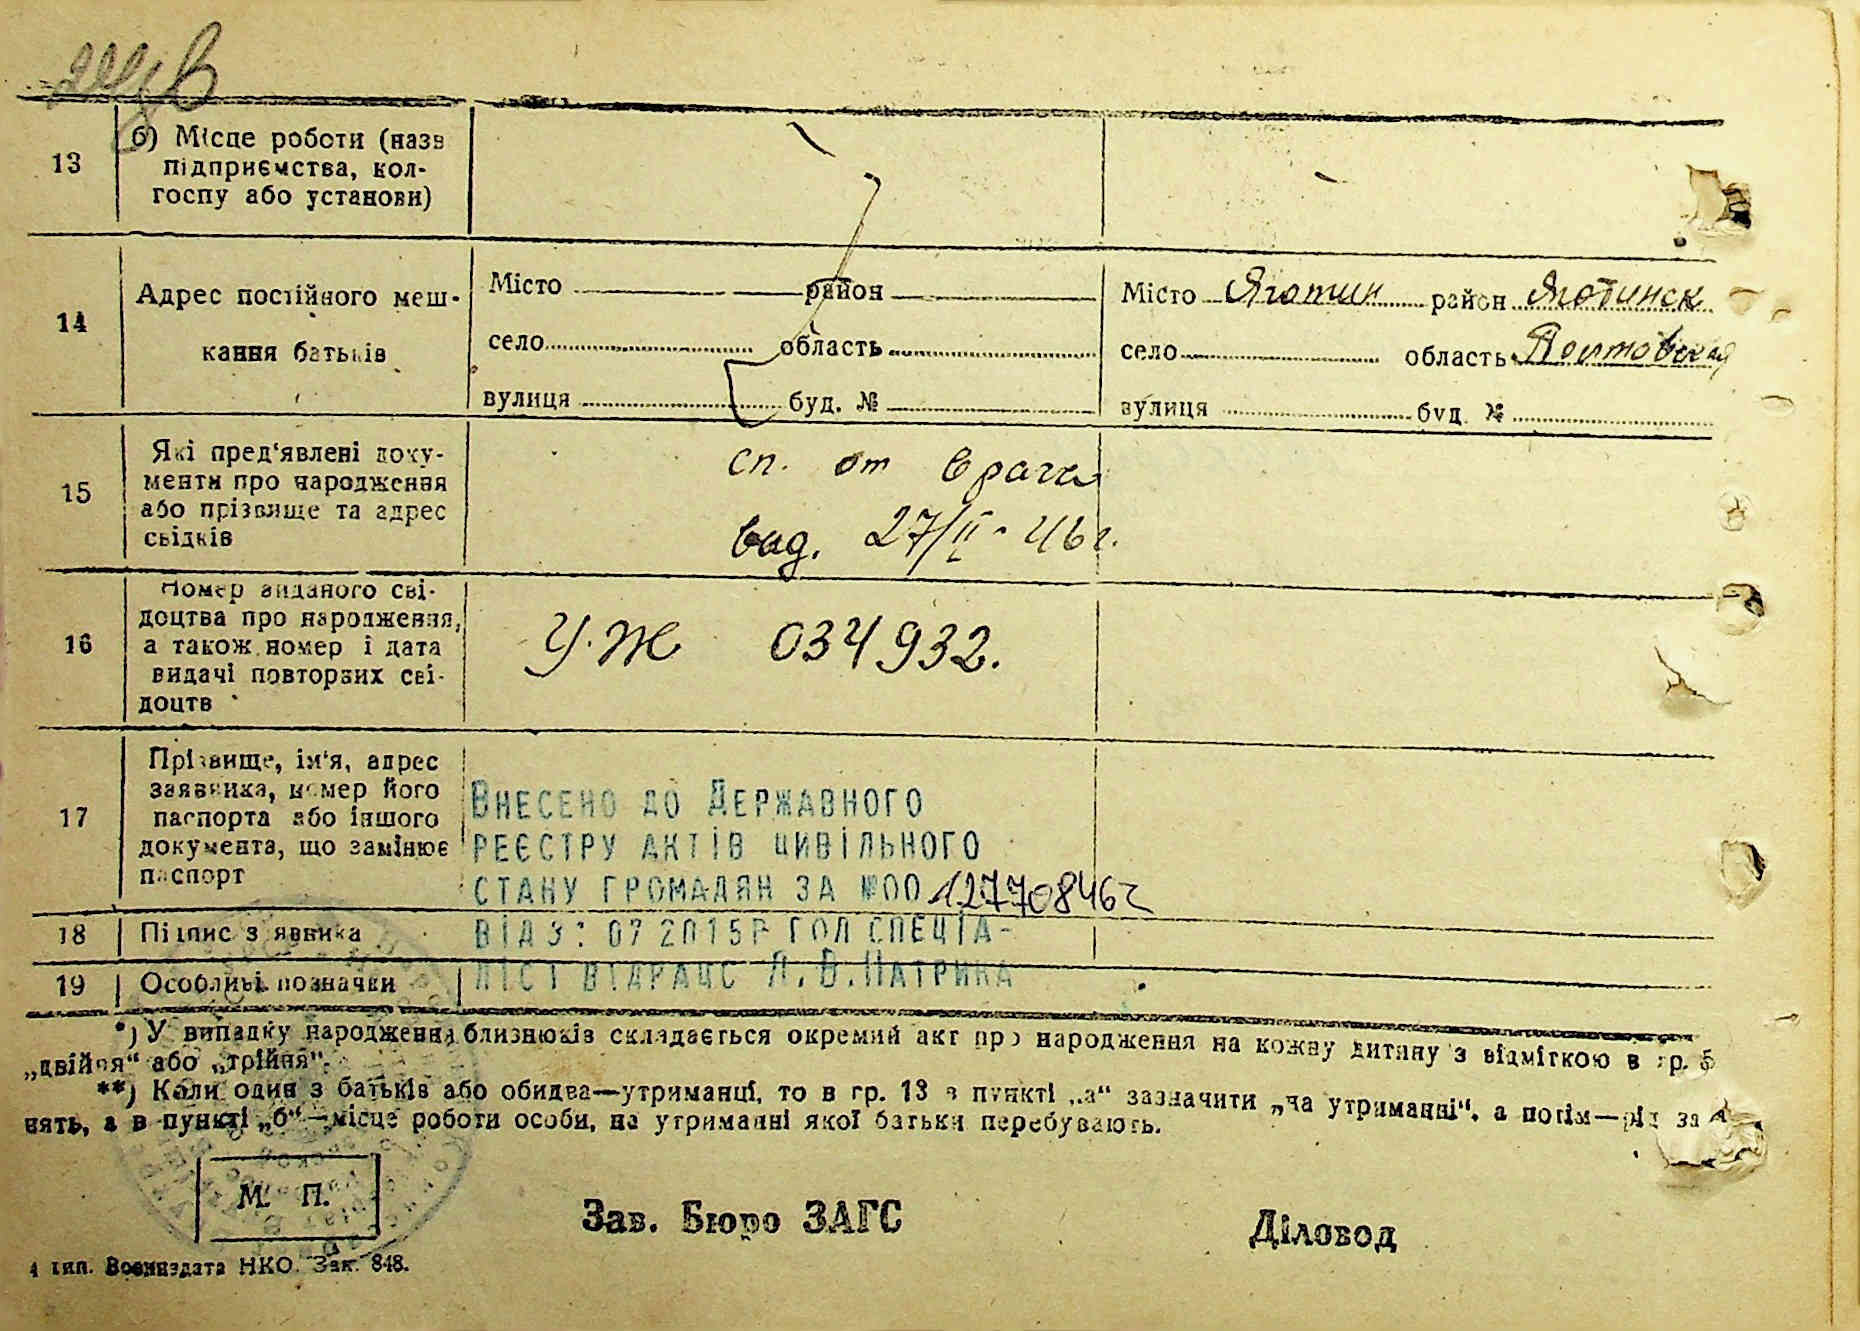 13
б) Місце роботи (назв
підприємства, кол-
госпу або установи)
14
Адрес постійного меш-
кання батьків
Місто район
село область
вулиця буд. №
Місто Яготин район Яготинск
село область Полтавская
вулиця буд. №
15
Які пред'явлені доку-
менти про народження
або прізвище та адрес
свідків
сп. от врача
выд. 27/II - 46 г.
16
Номер виданого сві-
доцтва про народження,
а також номер і дата
видачі повторних сві-
доцтв
У-Ж 034932.
17
Прізвище, ім'я, адрес
заявника, номер його
паспорта або іншого
документа, що замінює
паспорт
Внесено до Державного
реєстру актів цивільного
стану громадян за №00127708462
18
Підпис заявника
від 3: 07 2015р гол спеціа-
19
Особливі позначки
ліст відрацс Л.В.Патрика
*) У випадку народження близнюків складається окремий акт про народження на кожну дитину з відміткою в гр. 5
„двійня“ або „трійня“.
**) Коли один з батьків або обидва—утриманці, то в гр. 13 в пункті „а“ зазначити „на утриманні“, а потім—рід за
нять, а в пункті „б“—місце роботи особи, на утриманні якої батьки перебувають.
М. П.
Зав. Бюро ЗАГС
Діловод
4 тип. Воениздата НКО. Зак. 848.